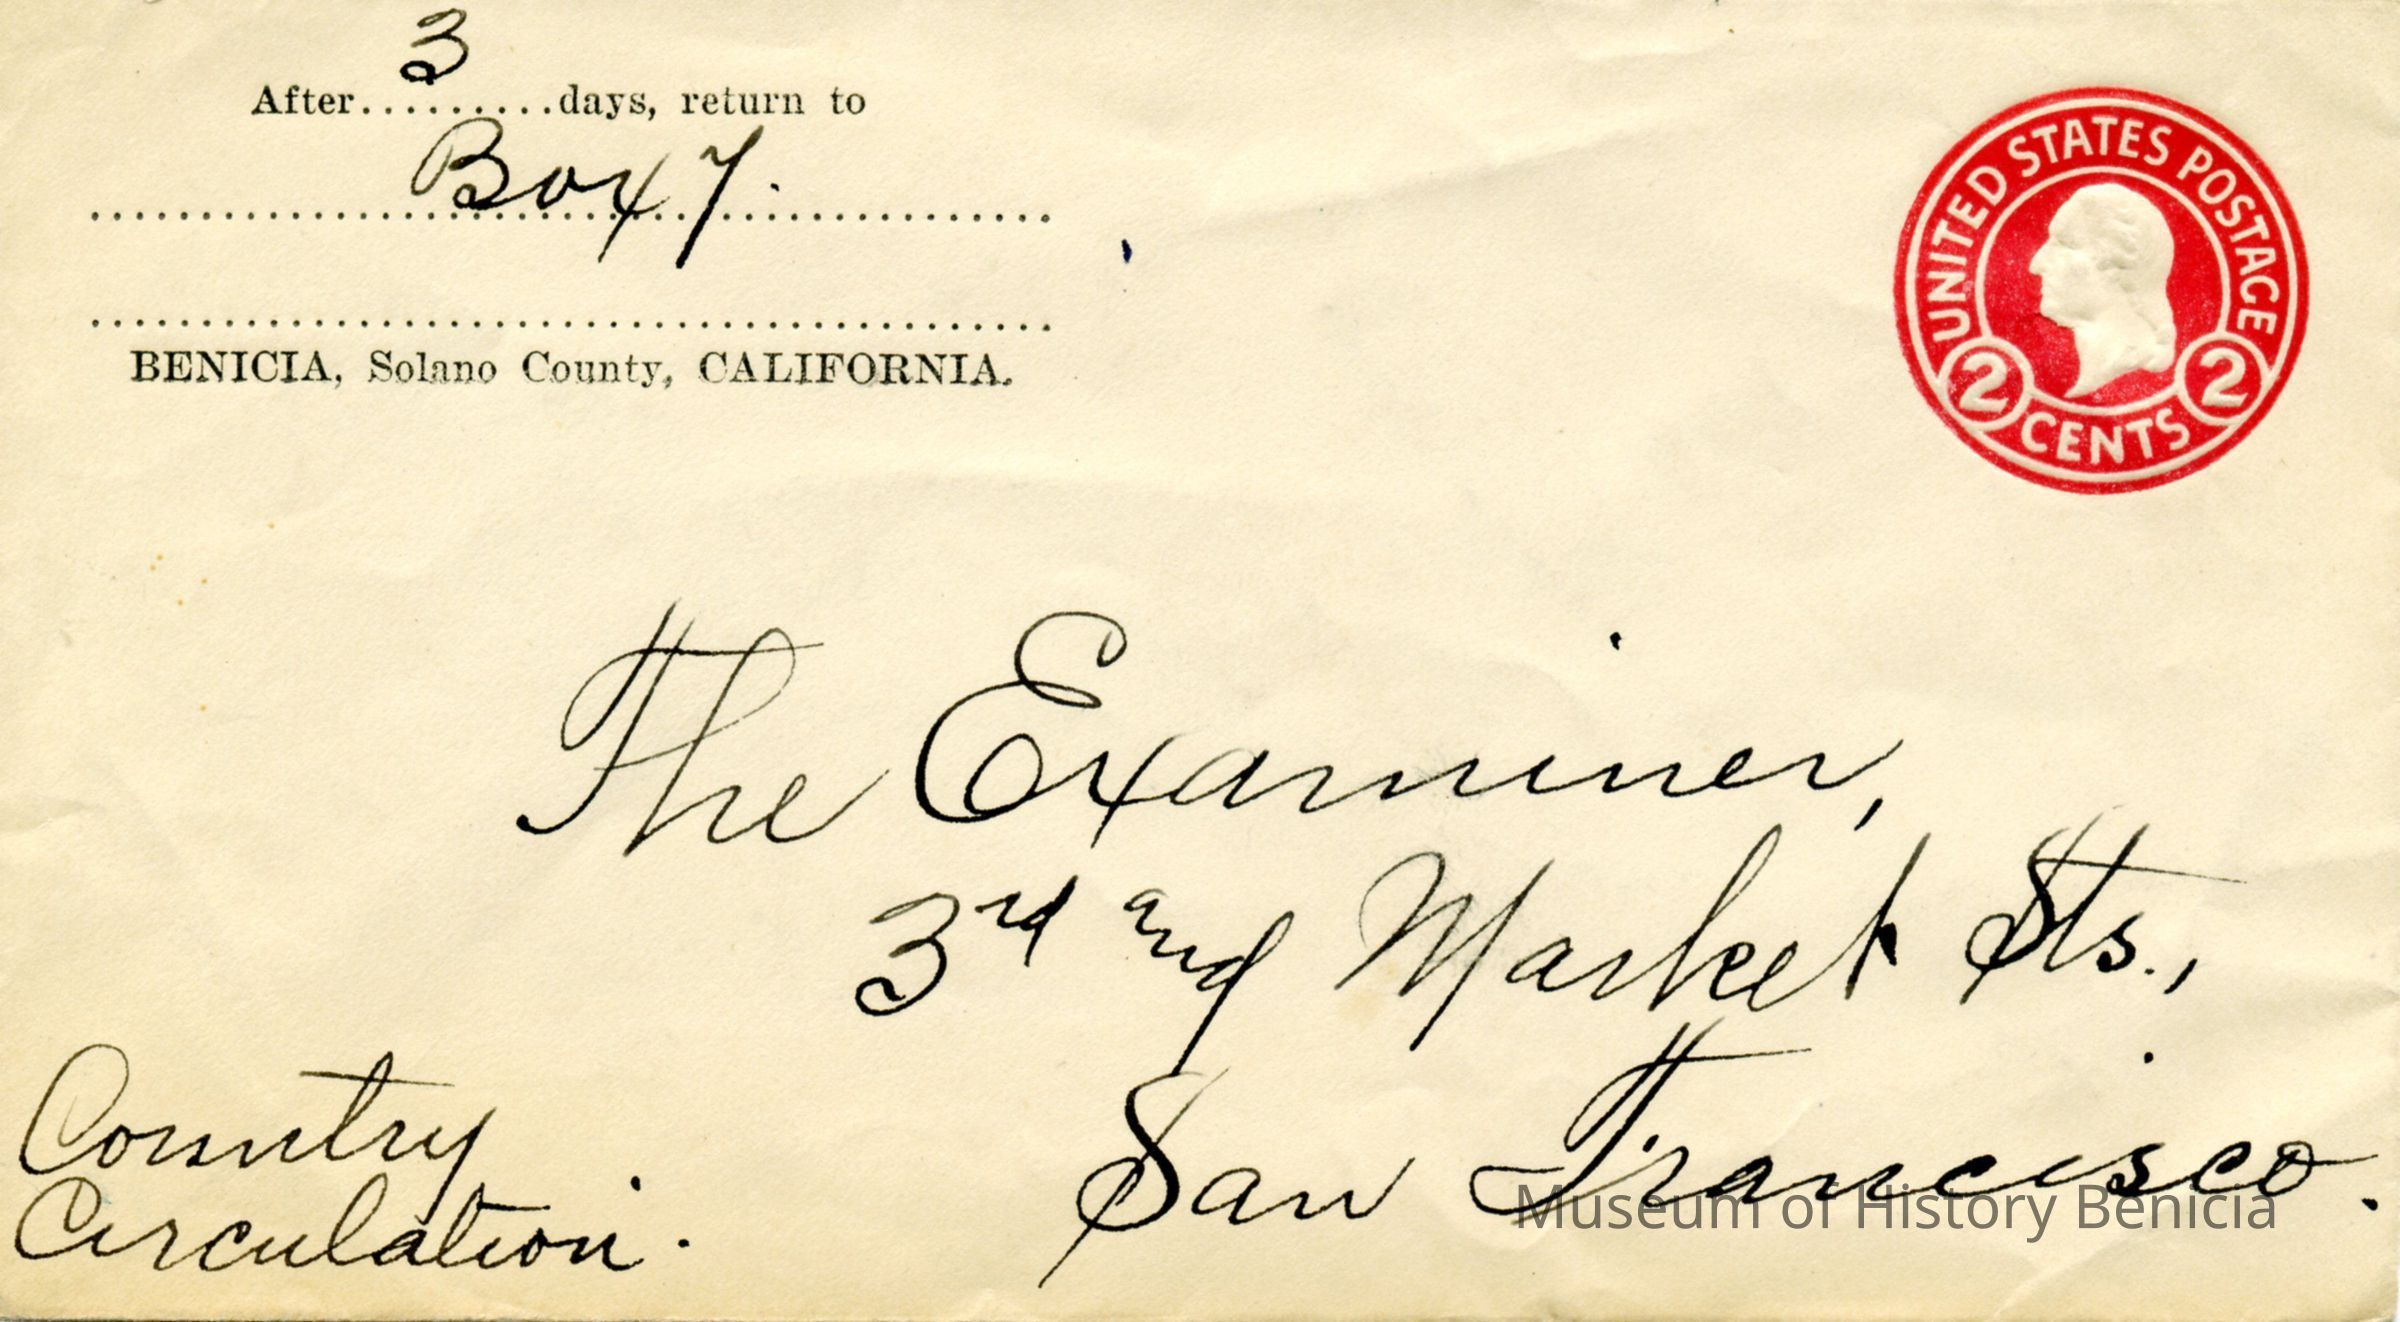 After 3 days, return to
Box 7.
BENICIA, Solano County, CALIFORNIA.
UNITED STATES POSTAGE
2 CENTS 2
The Examiner,
3rd and Market Sts.,
San Francisco.
Country
Circulation.
Museum of History Benicia